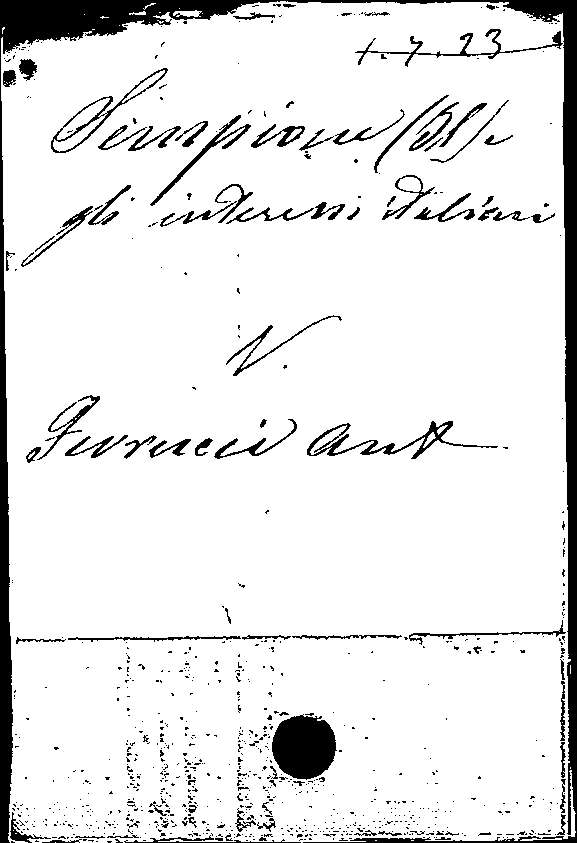 1.7.23
Sempione (Il) e
gli interessi italiani
V.
Ferrucci Ant